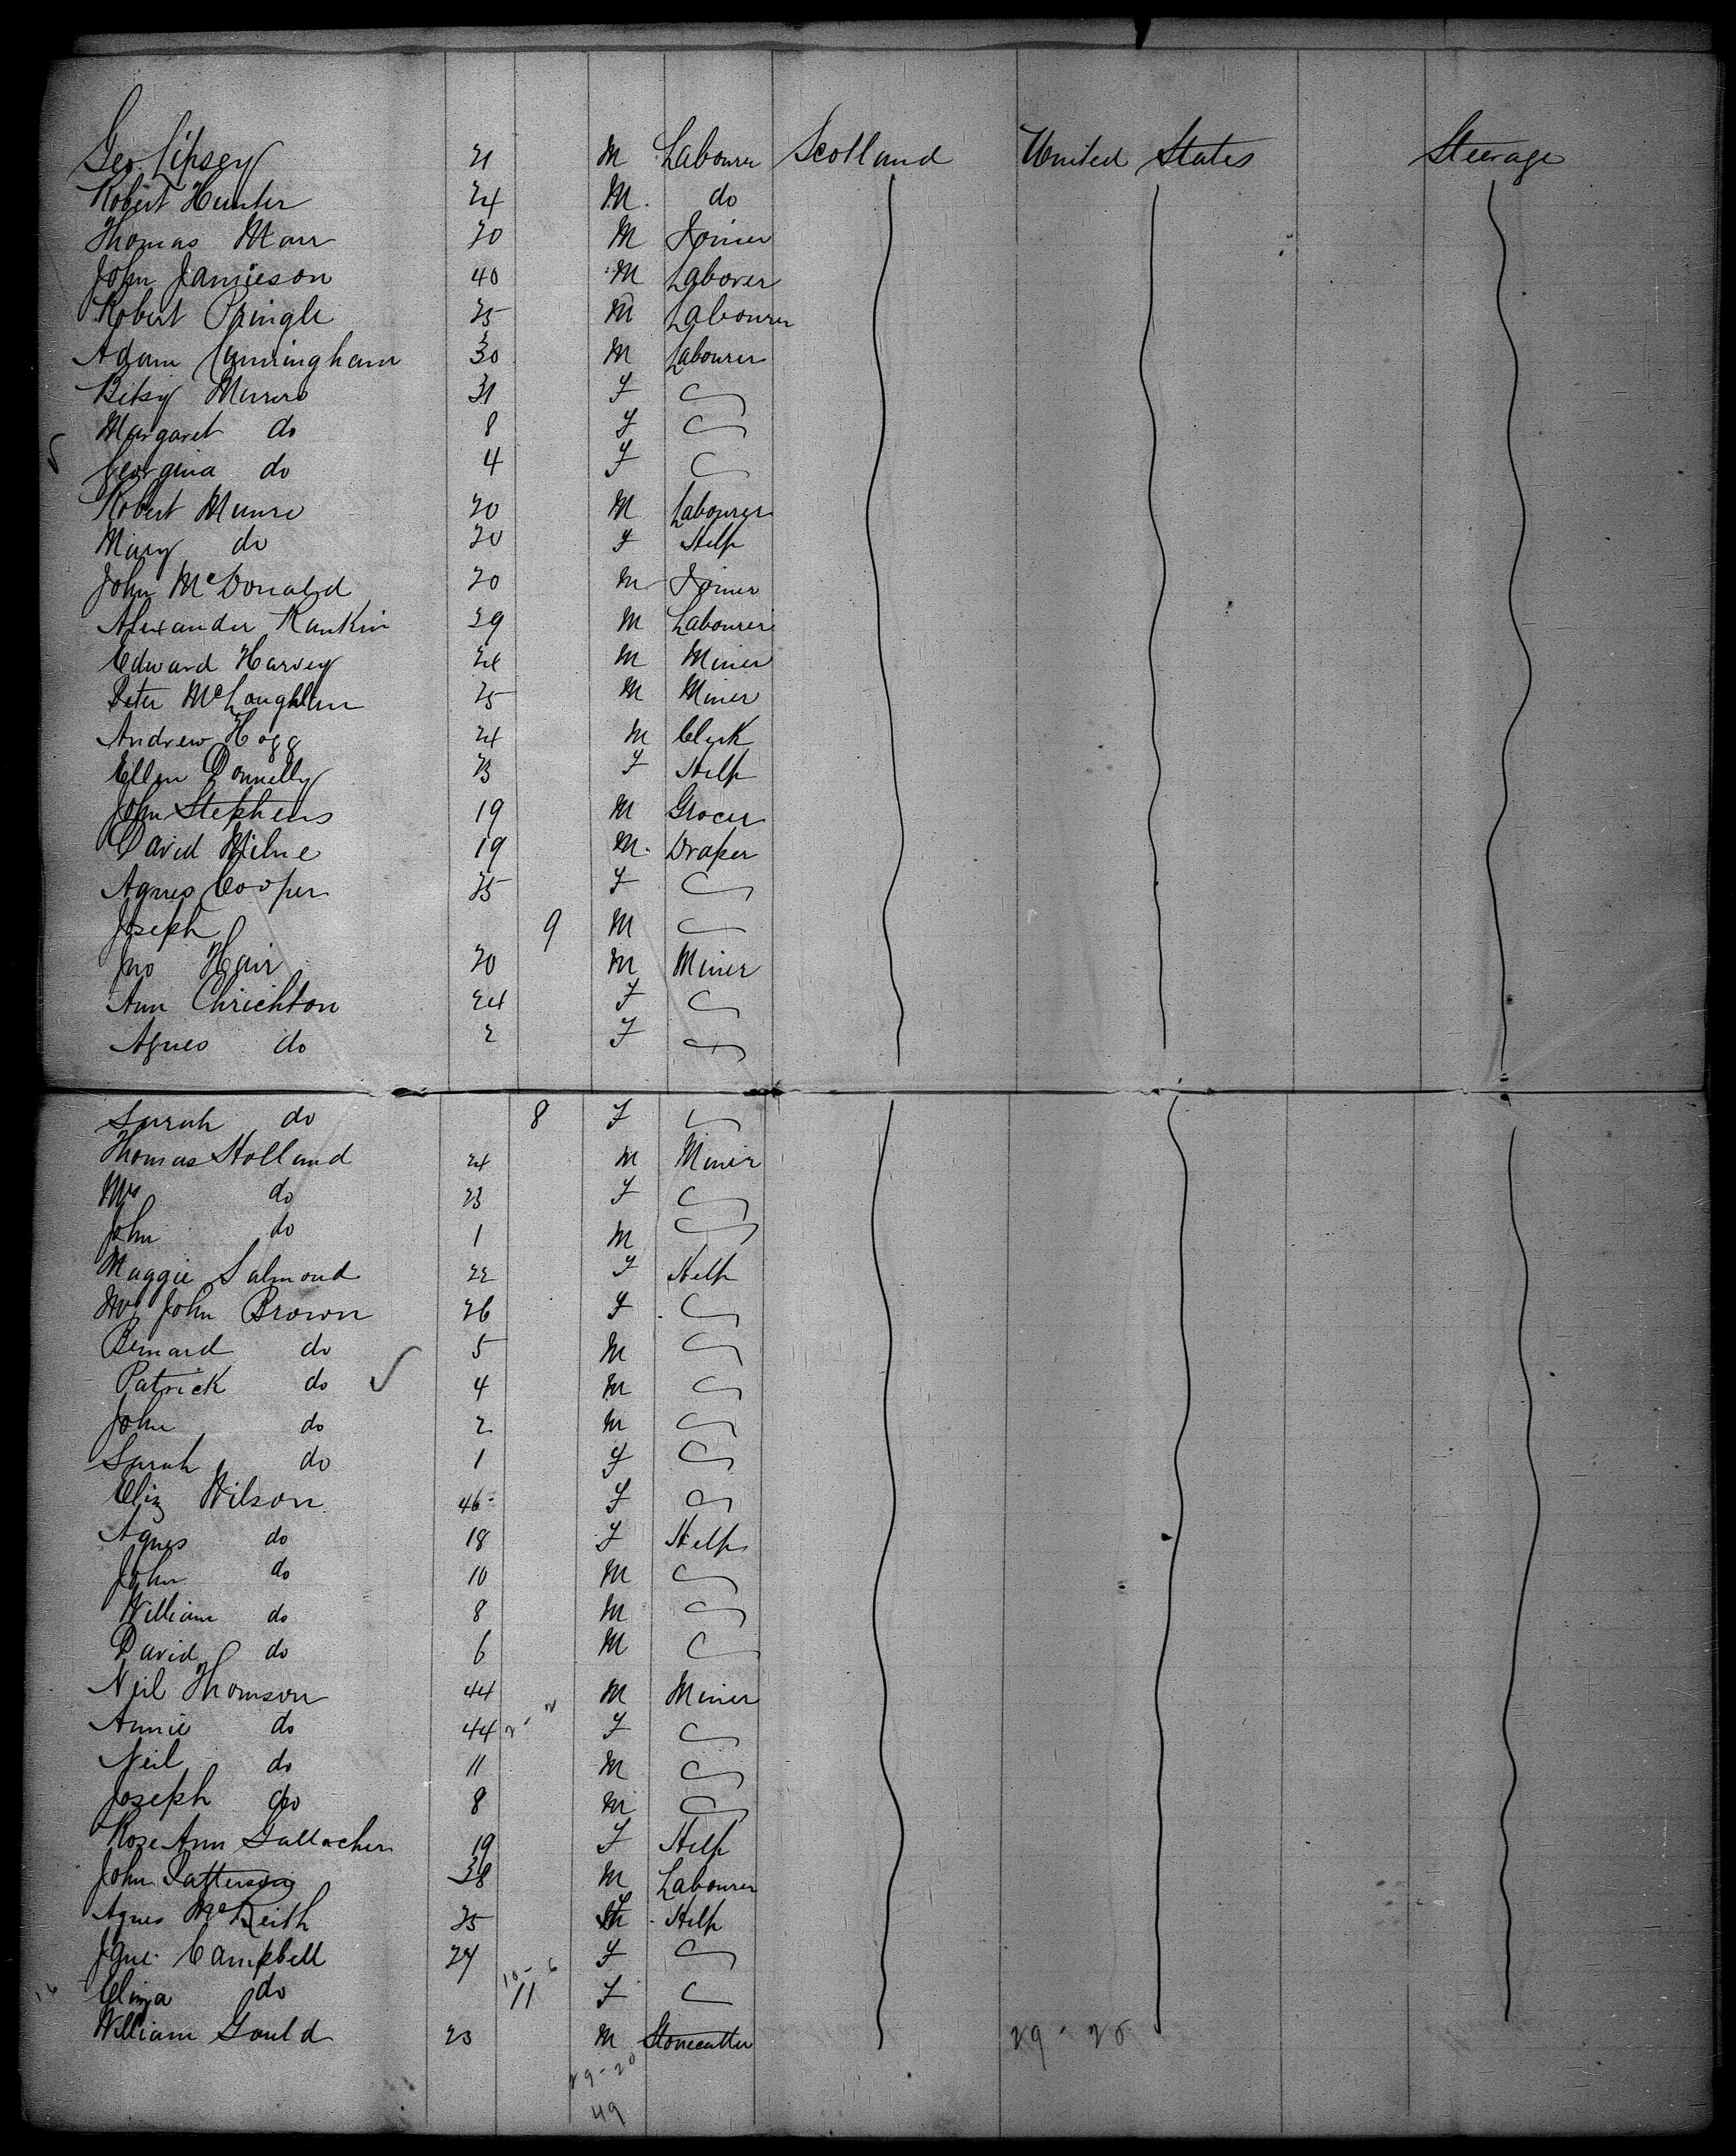 Geo. Lipsey 21 M Labourer Scotland United States Steerage
Robert Hunter 24 M. do
Thomas Marr 20 M Joiner
John Jamieson 40 M Laborer
Robert Pringle 25 M Labourer
Adam Cunningham 30 M Labourer
Betsy Munro 31 F
Margaret do 8 F
Georgina do 4 F
Robert Munro 20 M Labourer
Mary do 20 F Help
John McDonald 20 M Joiner
Alexander Rankin 29 M Labourer
Edward Harvey 24 M Miner
Peter McLoughlin 25 M Miner
Andrew Hogg 24 M Clerk
Ellen Donnelly 23 F Help
John Stephens 19 M Grocer
David Milne 19 M. Draper
Agnes Cooper 25 F
Joseph 9 M
Jno Hair 20 M Miner
Ann Chrichton 24 F
Agnes do 2 F
Sarah do 8 F
Thomas Holland 24 M Miner
Mrs do 23 F
John do 1 M
Maggie Salmond 22 F Help
Mrs John Brown 26 F
Bernard do 5 M
Patrick do 4 M
John do 2 M
Sarah do 1 F
Eliz Wilson 46 F
Agnes do 18 F Help
John do 10 M
William do 8 M
David do 6 M
Neil Thomson 44 M Miner
Annie do 44 F
Neil do 11 M
Joseph do 8 M
Rose Ann Gallacher 19 F Help
John Patterson 38 M Labourer
Agnes McKeith 25 F Help
Jane Campbell 24 F
10-6
Eliza do 11 F
William Gould 23 M Stonecutter 29-20
29-20
49